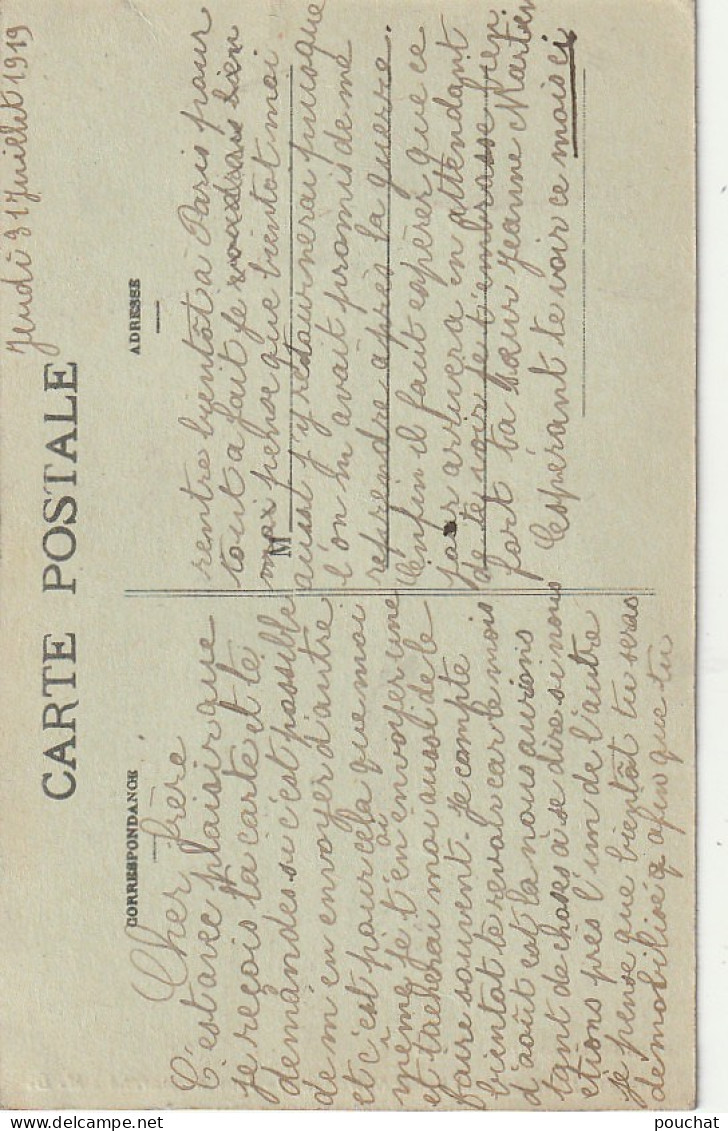 Jeudi 31 Juillet 1919
CARTE POSTALE
CORRESPONDANCE
ADRESSE
M
Cher frère
C'est avec plaisir que
je reçois ta carte et te
demandes si c'est possible
de m'en envoyer d'autre
et c'est pour cela que moi
même je t'en envoyer une
et tacherai moi aussi de le
faire souvent. Je compte
bientot te revoir car le mois
d'août est la nous aurions
tant de choses à se dire si nous
etions près l'un de l'autre
je pense que bientôt tu seras
démobilisé afin que tu
rentre bientôt à Paris pour
tout a fait je voudrais bien
moi pense que bientot moi
aussi j'y retournerai puisque
l'on m'avait promis de me
reprendre après la guerre.
Enfin il faut espérer que ce
jour arrivera en attendant
de te voir je t'embrasse bien
fort ta sœur Jeanne Martin
Espérant te voir ce mois ci
pouchat